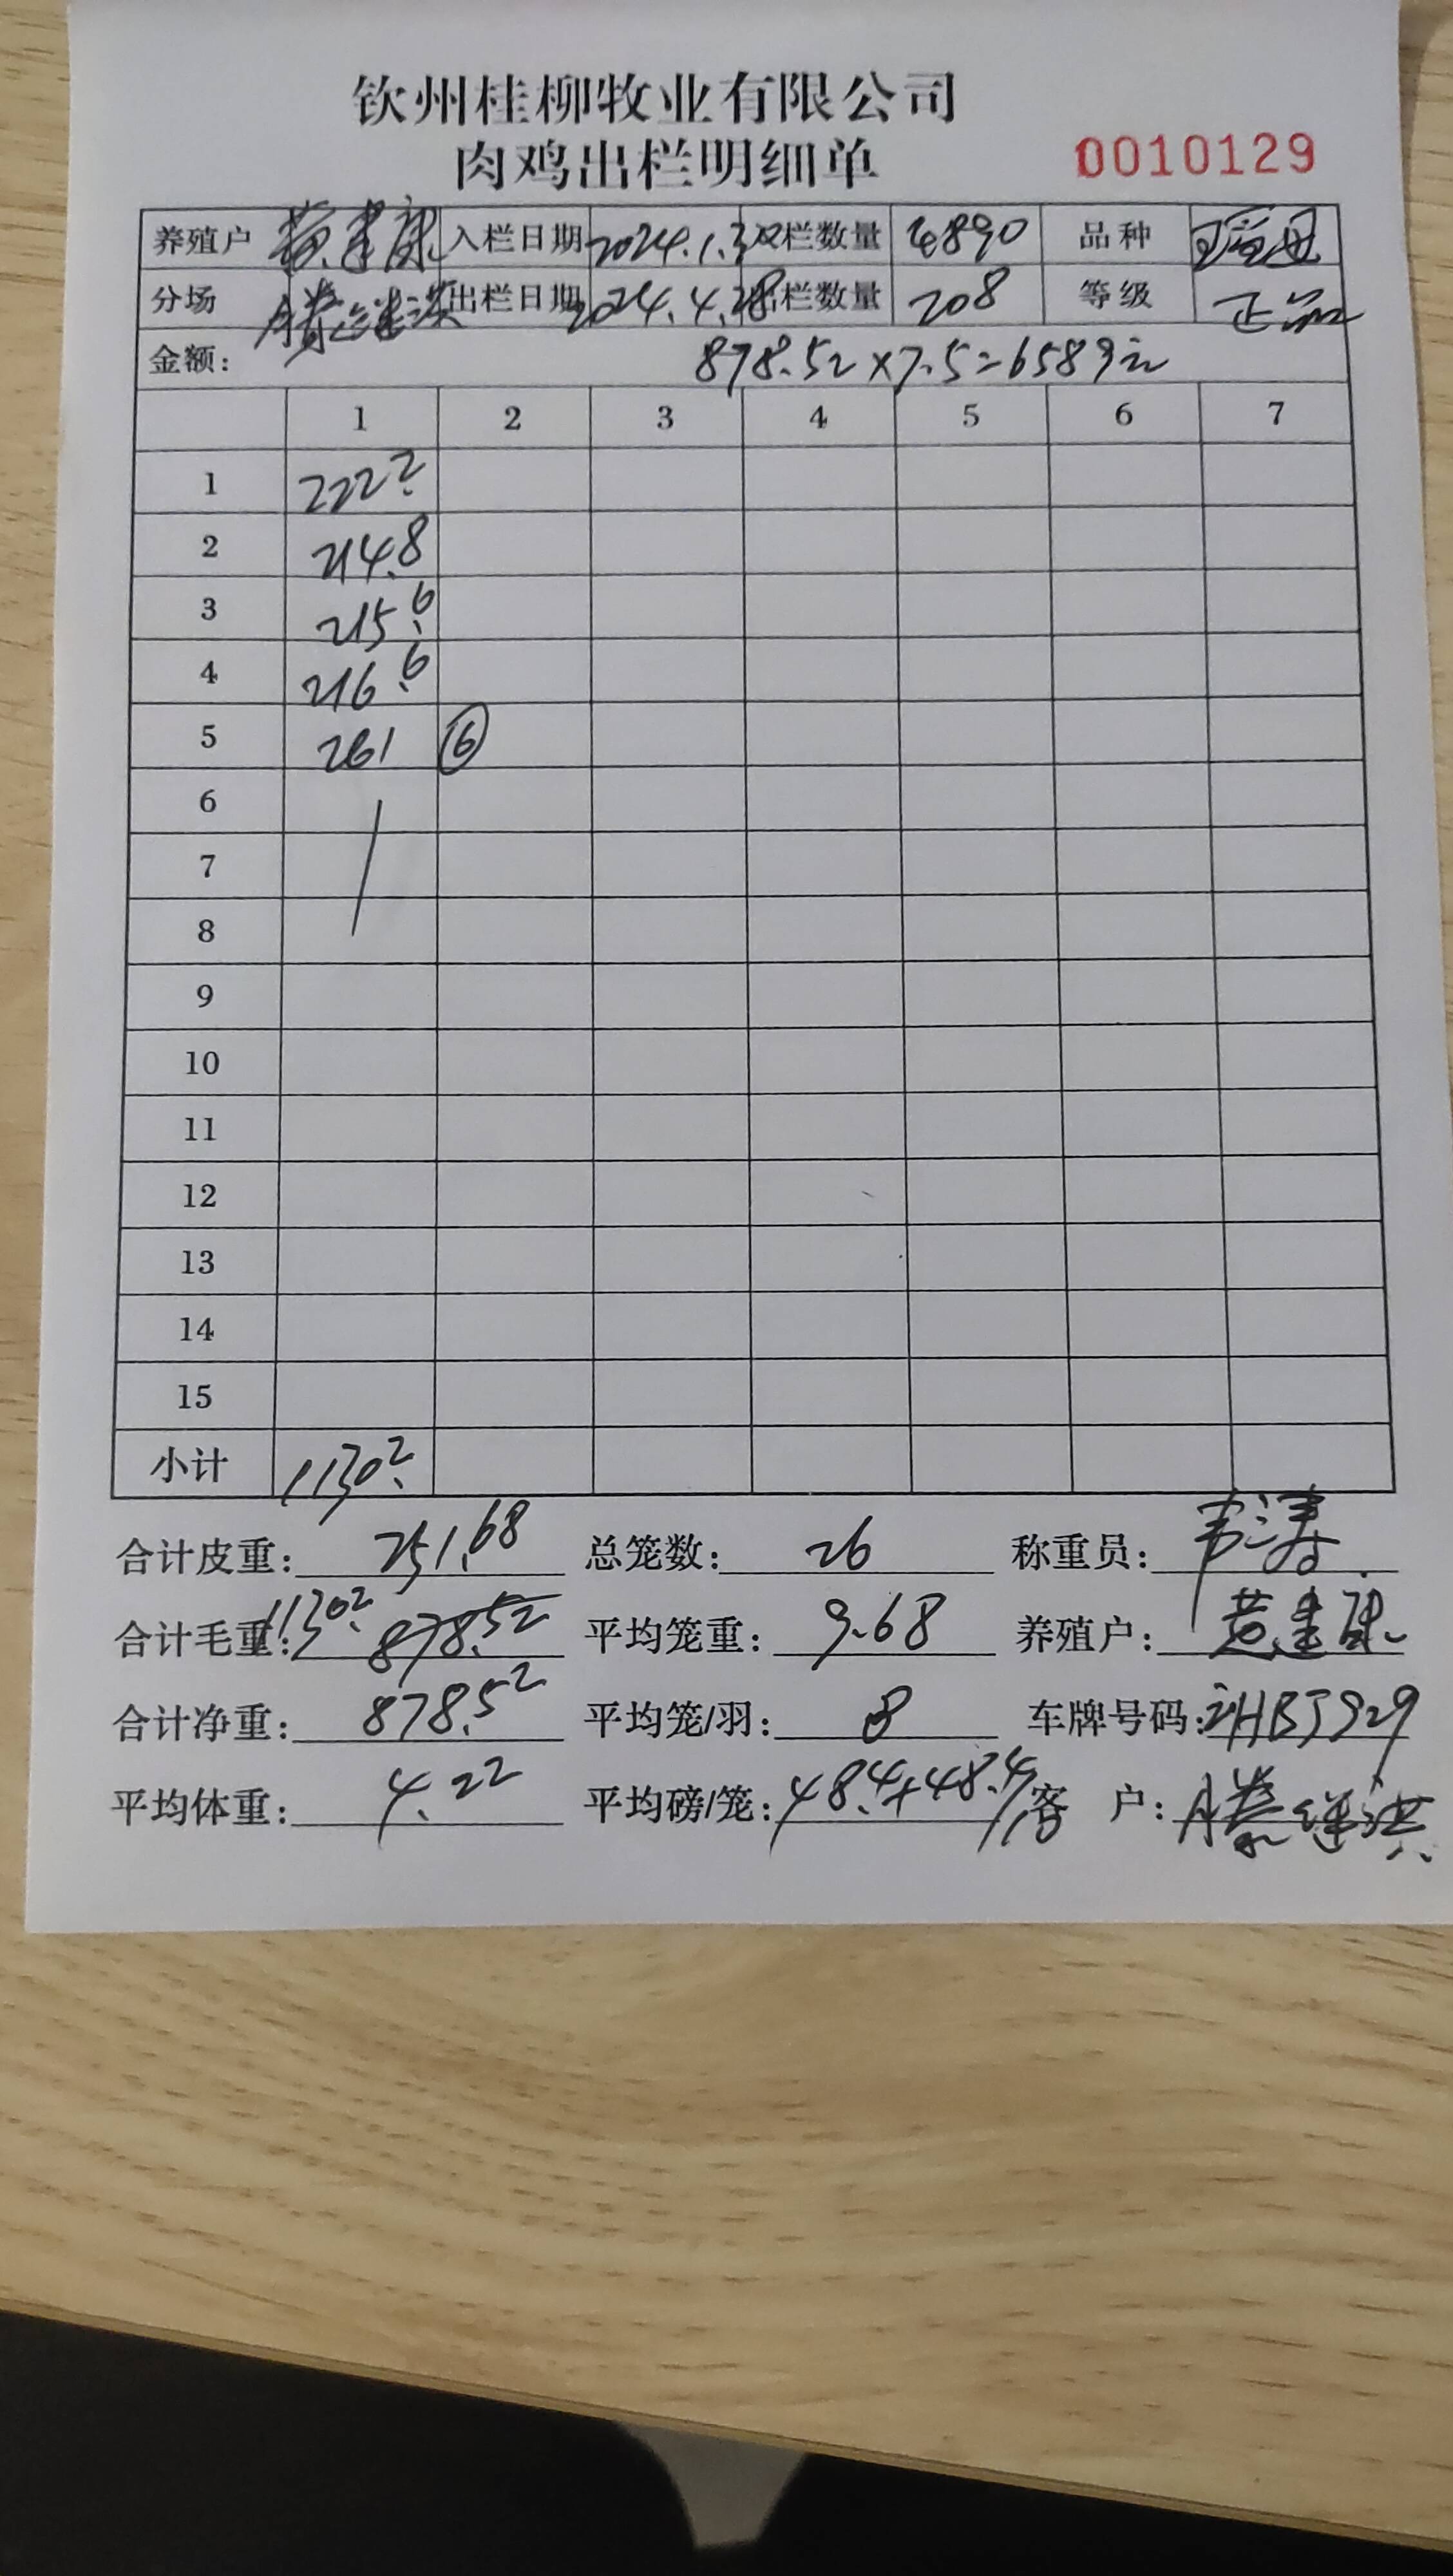 钦州桂柳牧业有限公司
肉鸡出栏明细单 0010129
养殖户 黄建康 入栏日期 2024.1.3 栏数量 6890 品种 瑶
分场 滕继洪 出栏日期 2024.4.28 栏数量 208 等级 正品
金额: 878.52×7.5=6589元
1 2 3 4 5 6 7
1 222.2
2 214.8
3 215.6
4 216.6
5 261 ⑥
6
7
8
9
10
11
12
13
14
15
小计 1130.2
合计皮重: 251.68 总笼数: 26 称重员: 韦涛
合计毛重: 1130.2 878.52 平均笼重: 9.68 养殖户: 黄建康
合计净重: 878.52 平均笼/羽: 8 车牌号码:
平均体重: 4.22 平均磅/笼: 48.4+48.4 客 户: 滕继洪